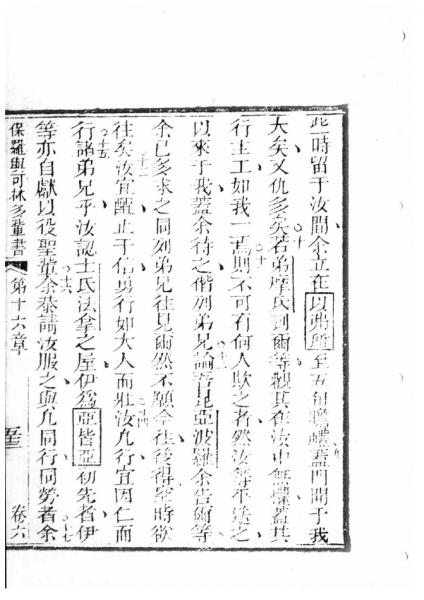 此一時留于汝間余立在以弗所至五旬瞻禮蓋門開于我
大矣又仇多矣若弟摩氏到爾等觀其在汝中無懼蓋其
行主工如我一焉則不可有何人欺之者然汝等平送之
以來于我蓋余待之偕列弟兄論吾昆亞波羅余告爾等
余已多求之同列弟兄往見爾然不願今往後得空時欲
往矣汝宜醒止于信勇行如大人而壯汝凡行宜因仁而
行諸弟兄乎汝認士氏法拿之屋伊為亞皆亞初先者伊
等亦自獻以役聖輩余恭請汝服之與凡同行同勞者余
保羅與可林多輩書 第十六章 卷六
九
十
十一
十二
十三
十四
十五
十六
十七